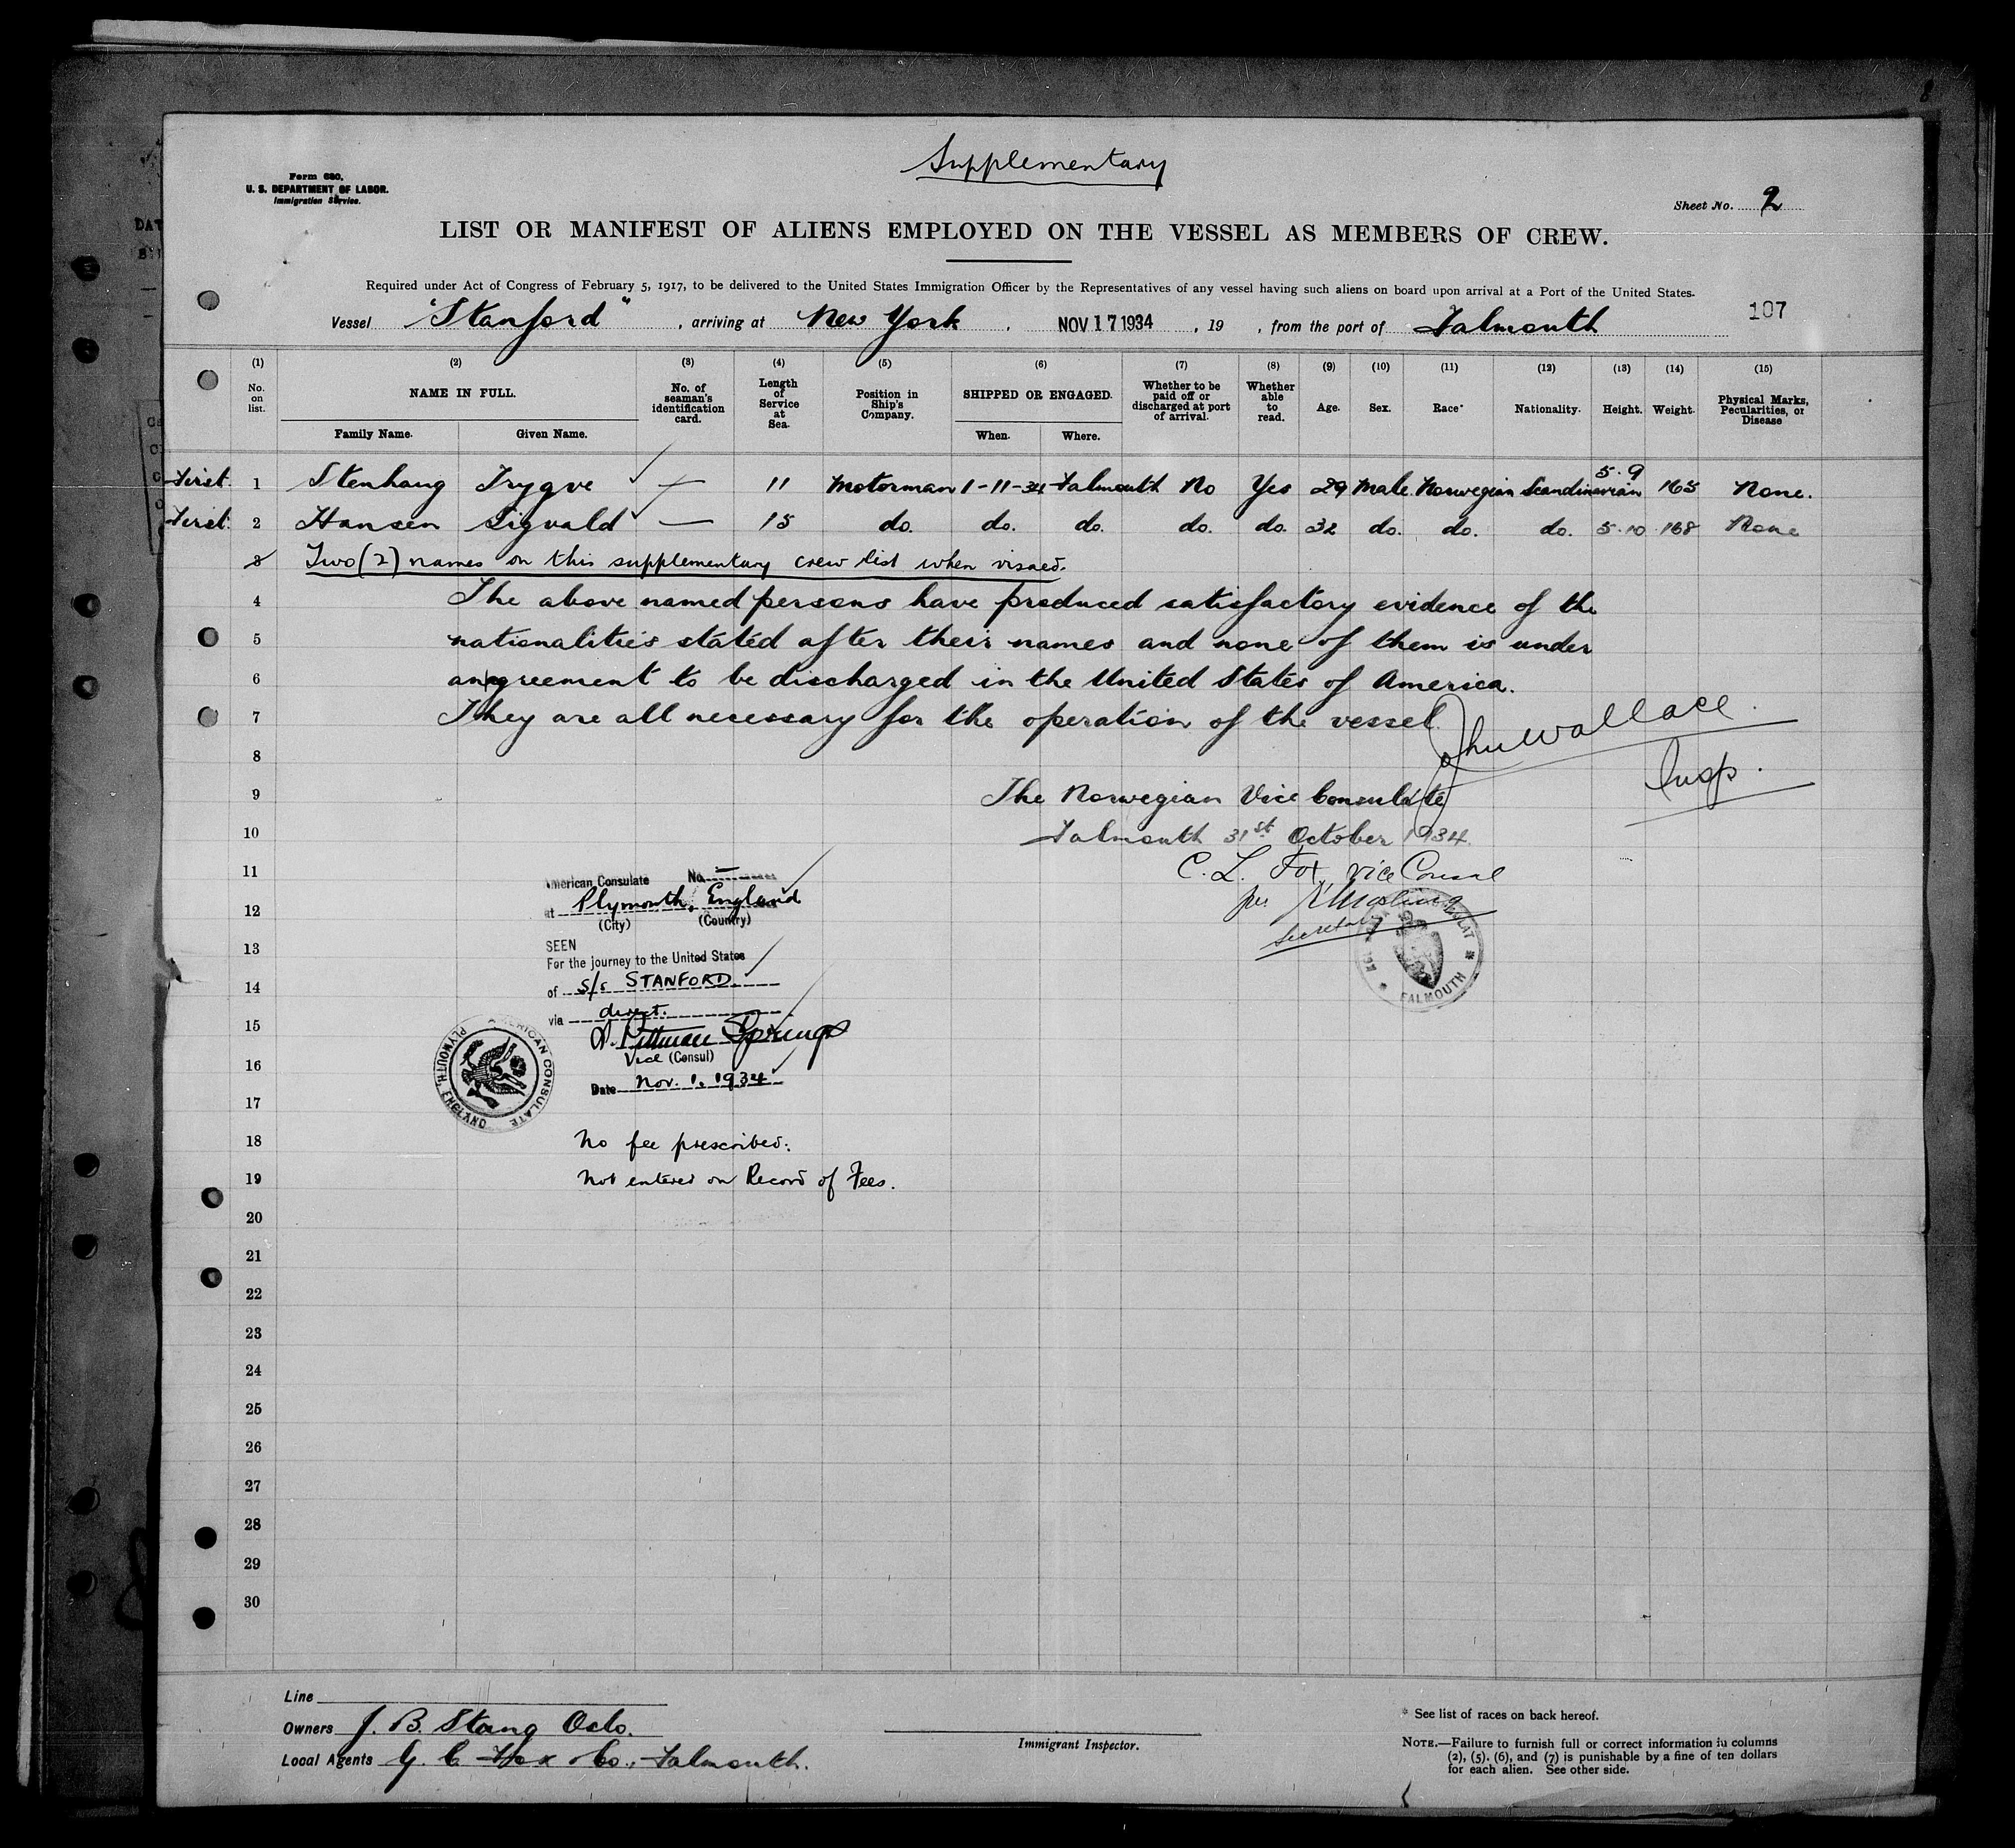 Supplementary
Form 680,
U. S. DEPARTMENT OF LABOR.
Immigration Service.
Sheet No. 2
LIST OR MANIFEST OF ALIENS EMPLOYED ON THE VESSEL AS MEMBERS OF CREW.
Required under Act of Congress of February 5, 1917, to be delivered to the United States Immigration Officer by the Representatives of any vessel having such aliens on board upon arrival at a Port of the United States.
107
Vessel "Stanford", arriving at New York, NOV 17 1934, 19 , from the port of Falmouth
(1) (2) (3) (4) (5) (6) (7) (8) (9) (10) (11) (12) (13) (14) (15)
No. on list. NAME IN FULL. Family Name. Given Name. No. of seaman's identification card. Length of Service at Sea. Position in Ship's Company. SHIPPED OR ENGAGED. When. Where. Whether to be paid off or discharged at port of arrival. Whether able to read. Age. Sex. Race* Nationality. Height. Weight. Physical Marks, Pecularities, or Disease
First 1 Stenhaug Trygve — 11 Motorman 1-11-34 Falmouth No Yes 29 Male Norwegian Scandinavian 5.9 165 None.
First 2 Hansen Sigvald — 15 do. do. do. do. do. 32 do. do. do. 5.10 168 None
3 Two (2) names on this supplementary crew list when visaed.
4 The above named persons have produced satisfactory evidence of the
5 nationalities stated after their names and none of them is under
6 an agreement to be discharged in the United States of America.
7 They are all necessary for the operation of the vessel.
John Wallace.
Insp.
8
9 The Norwegian Vice Consulate
10 Falmouth 31st October 1934.
C. L. Fox, Vice Consul
per
Secretary
FALMOUTH
11 American Consulate No. —
12 at Plymouth, England
(City) (Country)
13 SEEN
For the journey to the United States
14 of S/s STANFORD.
15 via direct.
Pittman Springs
16 Vice (Consul)
Date Nov. 1, 1934
AMERICAN CONSULATE
PLYMOUTH, ENGLAND
17
18 No fee prescribed.
19 Not entered on Record of Fees.
20
21
22
23
24
25
26
27
28
29
30
Line
Owners J. B. Stang Oslo.
Local Agents G. C. Fox & Co., Falmouth.
Immigrant Inspector.
* See list of races on back hereof.
NOTE.—Failure to furnish full or correct information in columns
(2), (5), (6), and (7) is punishable by a fine of ten dollars
for each alien. See other side.